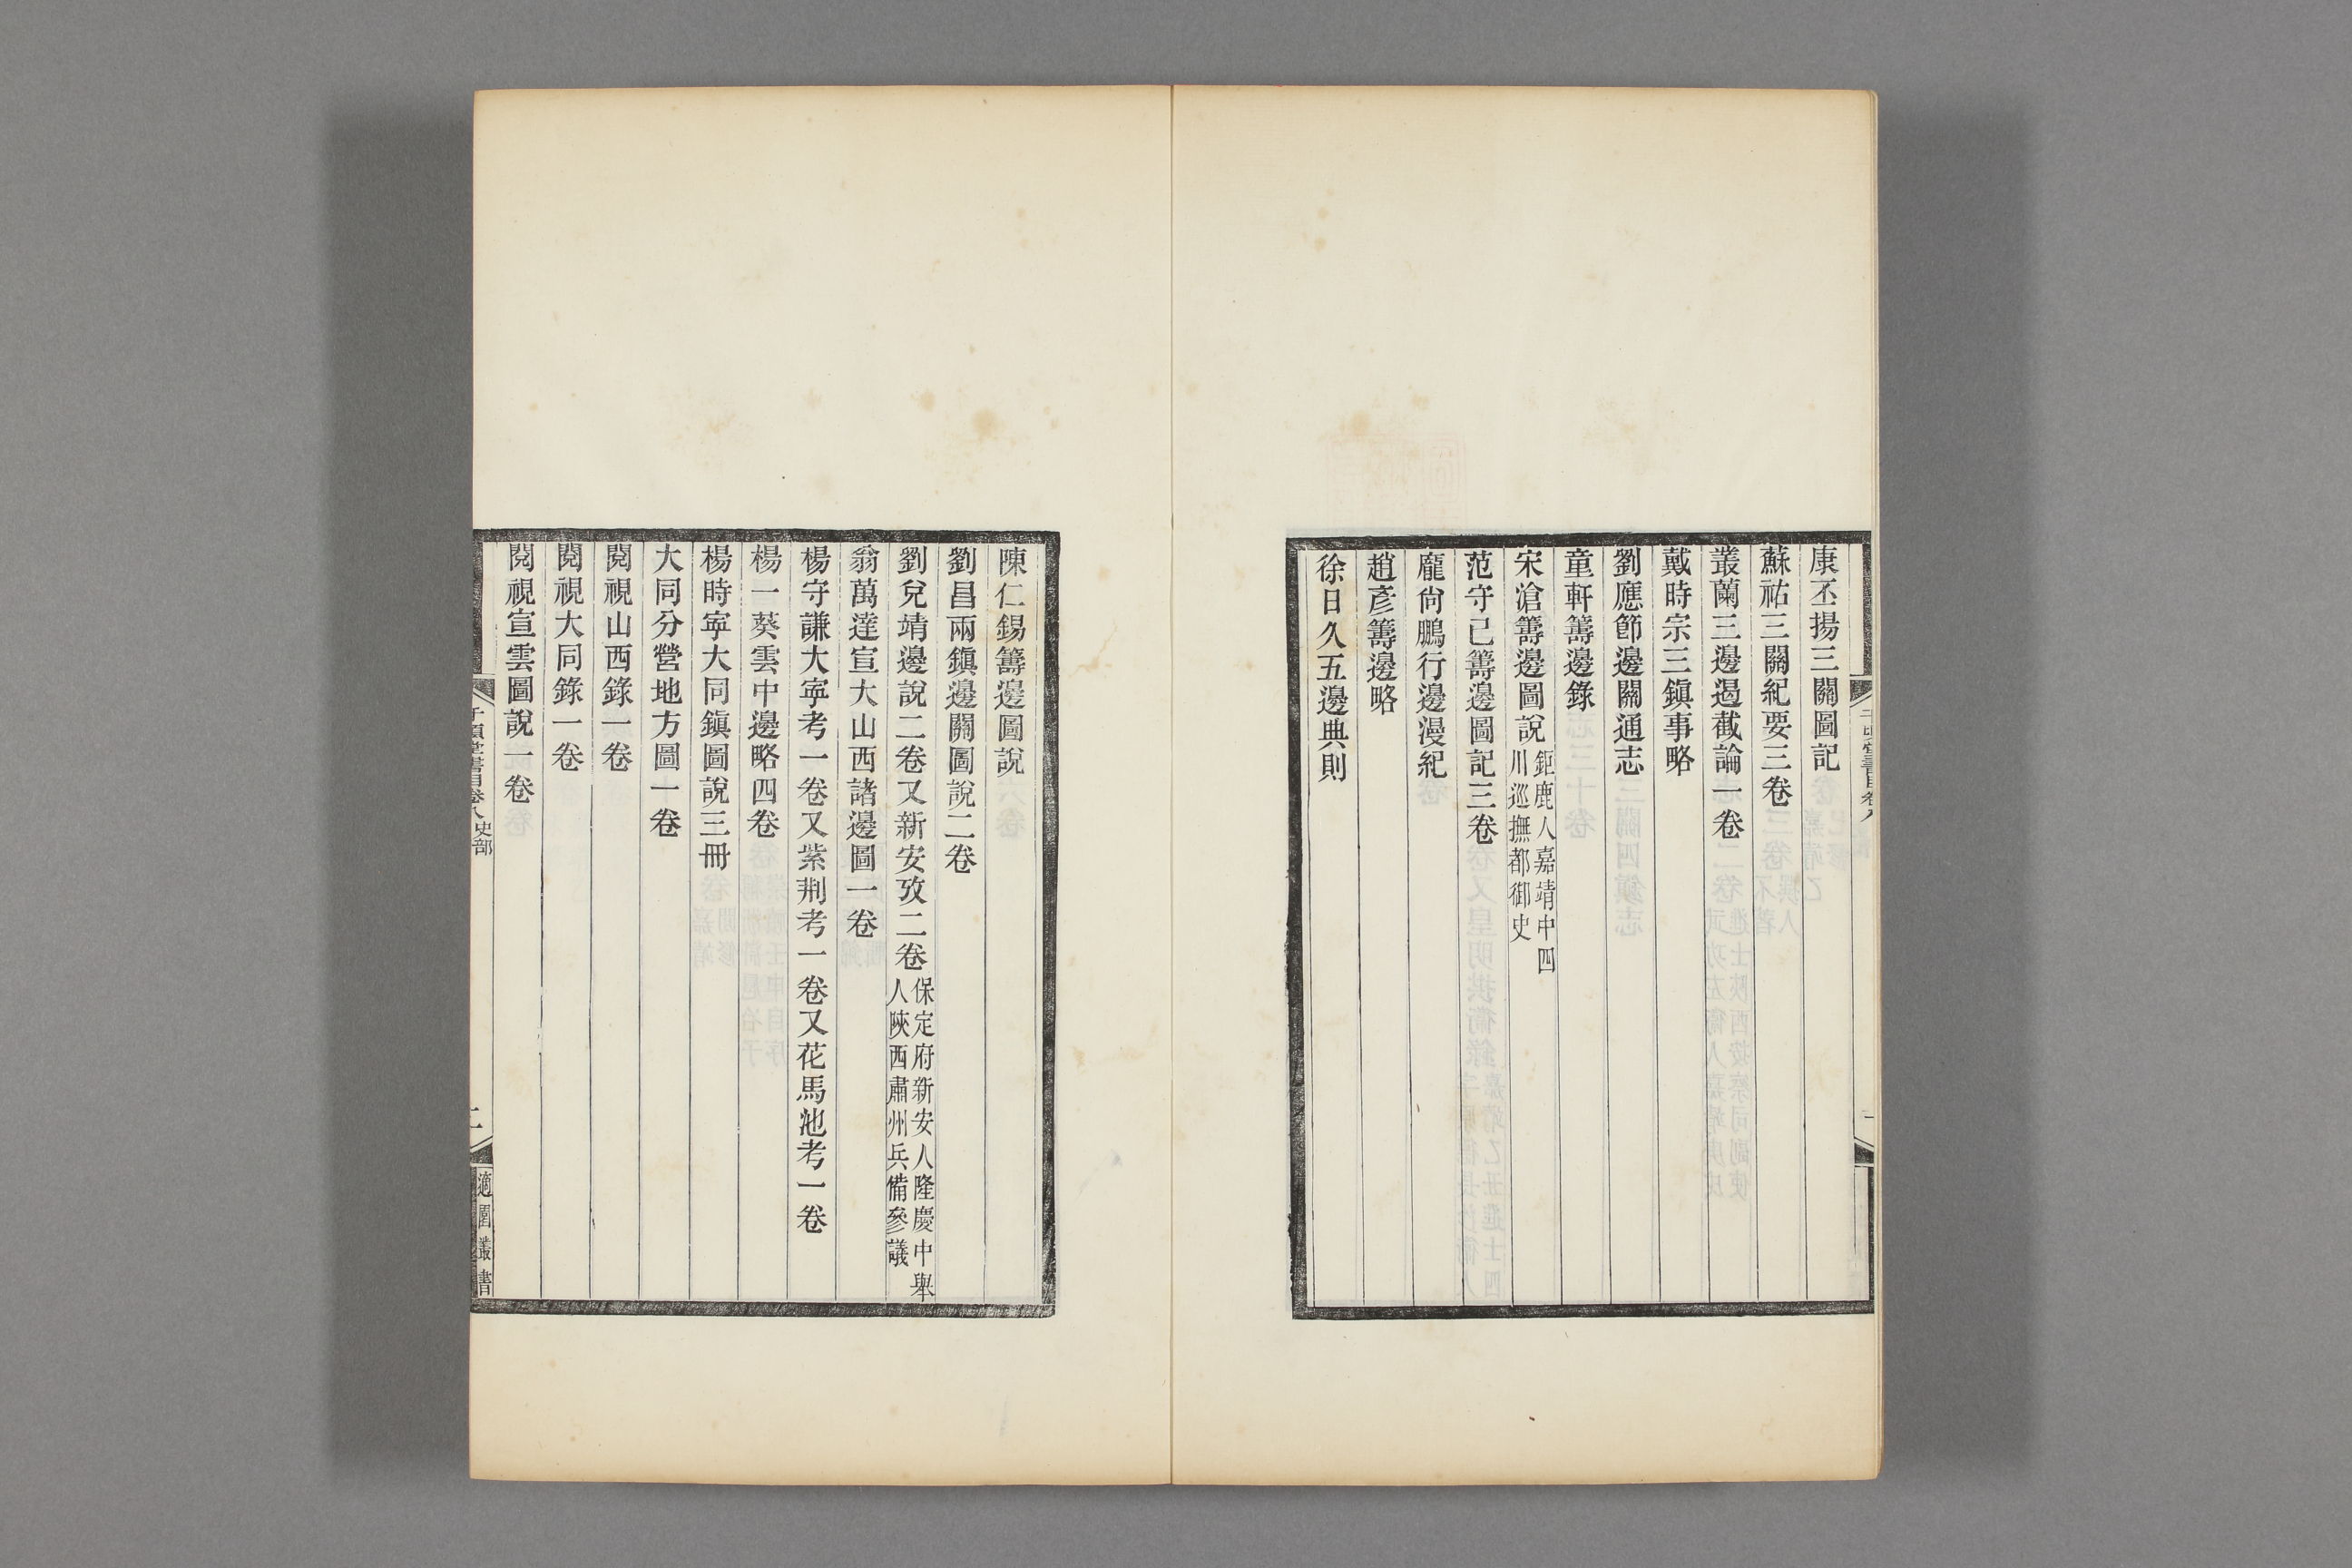 康丕揚三關圖記
蘇祐三關紀要三卷
叢蘭三邊遏截論一卷
戴時宗三鎮事略
劉應節邊關通志
童軒籌邊錄
宋滄籌邊圖說鉅鹿人嘉靖中四
川巡撫都御史
范守己籌邊圖記三卷
龐尙鵬行邊漫紀
趙彥籌邊略
徐日久五邊典則
陳仁錫籌邊圖說
劉昌兩鎮邊關圖說二卷
劉兌靖邊說二卷又新安攷二卷保定府新安人隆慶中舉
人陝西肅州兵備參議
翁萬達宣大山西諸邊圖一卷
楊守謙大寧考一卷又紫荆考一卷又花馬池考一卷
楊一葵雲中邊略四卷
楊時寧大同鎮圖說三冊
大同分營地方圖一卷
閱視山西錄一卷
閱視大同錄一卷
閱視宣雲圖說一卷
千頃堂書目卷八 史部
二
適園叢書